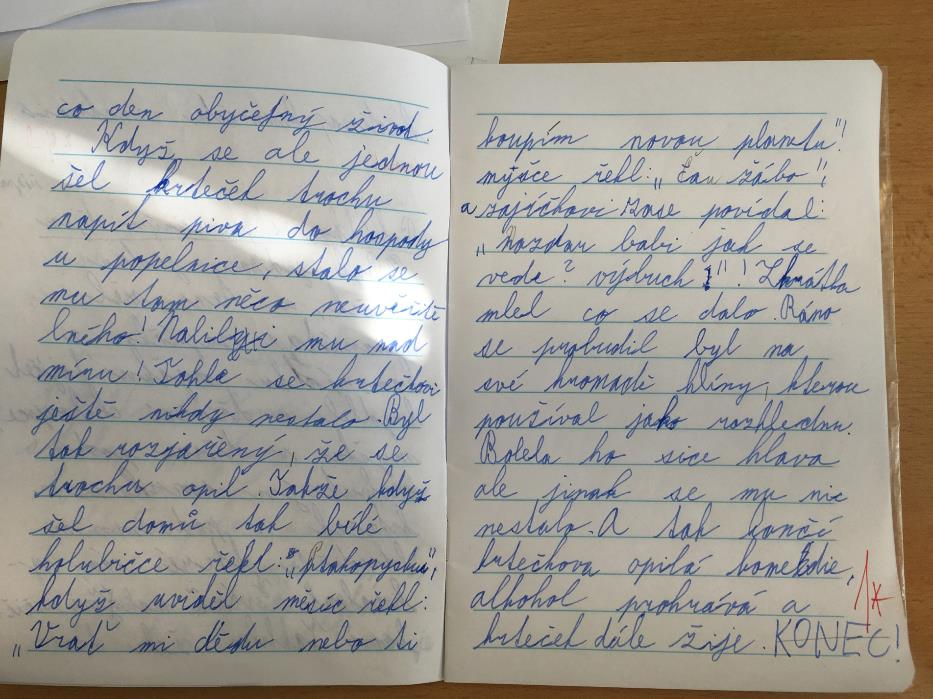 co den obyčejný život.
Když se ale jednou
šel krteček trochu
napít piva do hospody
u popelnice, stalo se
mu tam něco neuvěřite
lného! Nalili mu nad
míru! Tohle se krtečkovi
ještě nikdy nestalo. Byl
tak rozjařený, že se
trochu opil. Takže když
šel domů tak bílé
holubičce řekl: „Ptakopysku",
když uviděl měsíc řekl:
„Vrať mi dědu nebo ti
koupím novou planetu"!
myšce řekl: „Čau žábo",
a zajíčkovi zase povídal:
„Nazdar babi jak se
vede? výbuch!"! Zkrátka
mlel co se dalo. Ráno
se probudil byl na
své hromadě hlíny, kterou
používal jako rozhlednu.
Bolela ho sice hlava
ale jinak se mu nic
nestalo. A tak končí
krtečkova opilá komedie,
alkohol prohrává a
krteček dále žije. KONEC!
1*